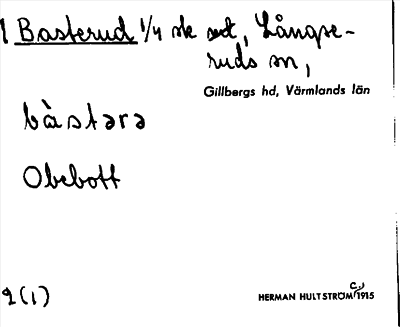 1 Basterud 1/4 sk , Långse-
ruds sn,
Gillbergs hd, Värmlands län
bàstərə
Obebott
2(1)
HERMAN HULTSTRÖM C:a 1915